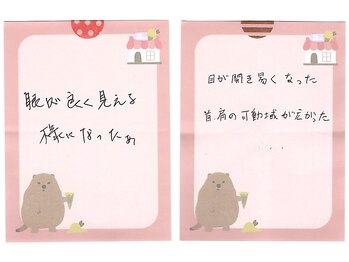 眼が良く見える
様になったぁ
目が開き易くなった
首肩の可動域が広がった
...